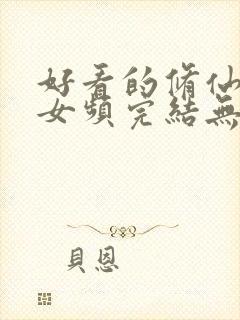 好看的脩仙
女頻完結無
貝恩